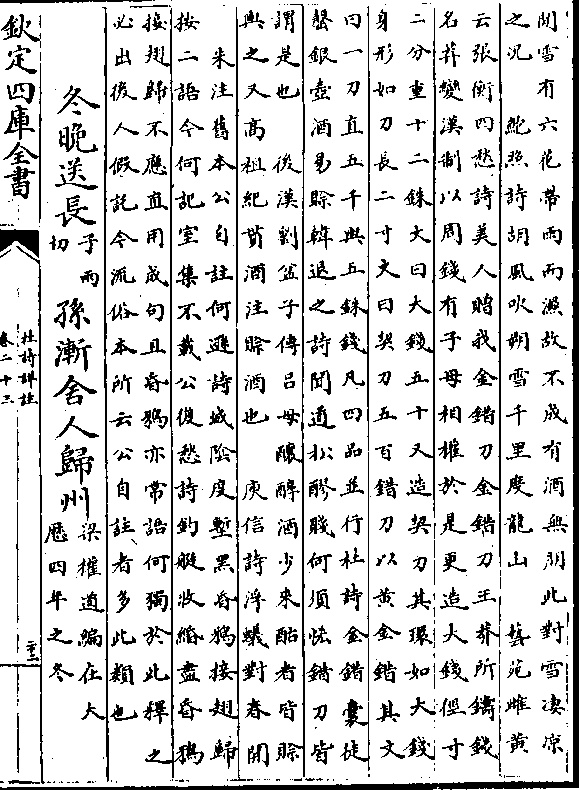 開雪有六花帶雨而濕故不成有酒無朋此對雪凄凉
之况　鮑照詩胡風吹朔雪千里度龍山　藝苑雌黄
云張衡四愁詩美人贈我金錯刀金錯刀王莽所鑄錢
名莽變漢制以周錢有子母相權於是更造大錢徑寸
二分重十二銖文曰大錢五十又造契刀其環如大錢
身形如刀長二寸文曰契刀五百錯刀以黄金錯其文
曰一刀直五千與五銖錢凡四品並行杜詩金錯囊徒
罄銀壺酒易賒韓退之詩聞道松醪賤何須恡錯刀皆
謂是也　後漢劉盆子傳吕母釀醇酒少來酤者皆賒
與之又高祖紀貰酒注賒酒也　庾信詩浮蟻對春開
朱注舊本公自註何遜詩城陰度塹黒昏鴉接翅歸
按二語今何記室集不載公復愁詩釣艇收緡盡昏鴉
接翅歸不應直用成句且昏鴉亦常語何獨於此釋之
必出後人假託今流俗本所云公自註者多此類也
冬晚送長子兩切孫漸舍人歸州梁權道編在大厯四年之冬
欽定四庫全書
杜詩詳註
卷二十三
二十二